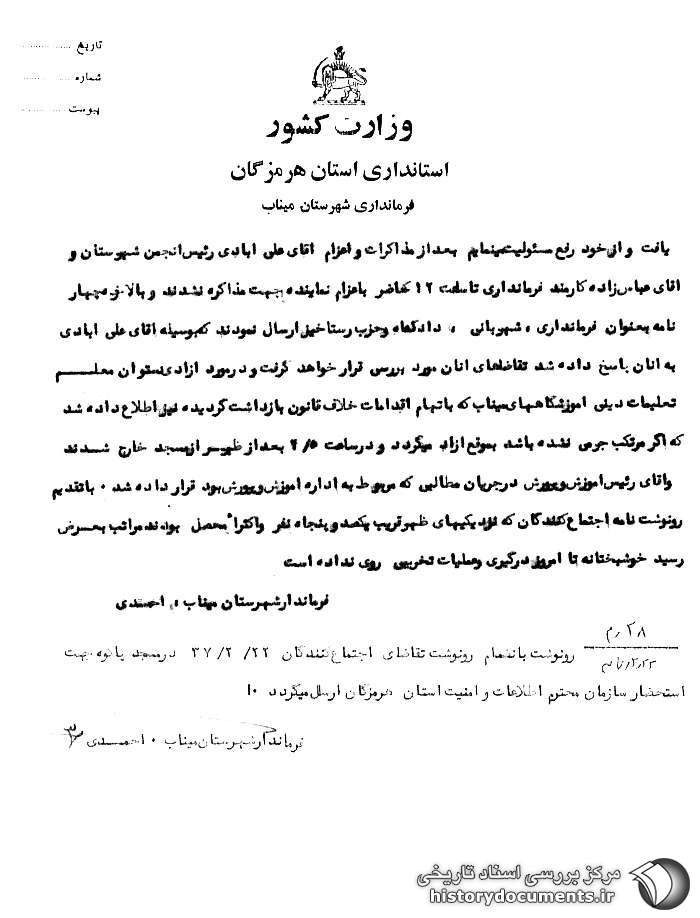 تاریخ ................
شماره ................
پیوست ................
وزارت کشور
استانداری استان هرمزگان
فرمانداری شهرستان میناب
یافت و از خود رفع مسئولیت مینمایم بعد از مذاکرات و اعزام آقای علی ابادی رئیس انجمن شهرستان و
اقای عباس زاده کارمند فرمانداری تا ساعت ۱۲ حاضر باعزام نماینده جهت مذاکره نشدند و بالاخره چهار
نامه بعنوان فرمانداری ، شهربانی ، دادگاه و حزب رستاخیز ارسال نمودند که بوسیله اقای علی ابادی
به انان پاسخ داده شد تقاضاهای انان مورد بررسی قرار خواهد گرفت و در مورد ازادی ستوان معلم
تعلیمات دینی اموزشگاههای میناب که باتهام اقدامات خلاف قانون بازداشت گردیده نیز اطلاع داده شد
که اگر مرتکب جرمی نشده باشد بموقع ازاد میگردد و در ساعت ۲/۵ بعد از ظهر از مسجد خارج شدند
واقای رئیس اموزش و پرورش در جریان مطالبی که مربوط به اداره اموزش و پرورش بود قرار داده شد ۰ با تقدیم
رونوشت نامه اجتماع کنندگان که نزدیکیهای ظهر قریب یکصد و پنجاه نفر واکثراً محصل بودند مراتب بعرض
رسید خوشبختانه تا امروز درگیری وعملیات تخریبی روی نداده است
فرماندار شهرستان میناب ، احمدی
۲۸ م
رونوشت بانضمام رونوشت تقاضای اجتماع کنندگان ۳۷/۲/۲۲ در مسجد جهت
استحضار سازمان محترم اطلاعات و امنیت استان هرمزگان ارسل میگردد ۱۰
فرماندار شهرستان میناب ۰ احمدی
مرکز بررسی اسناد تاریخی
historydocuments.ir